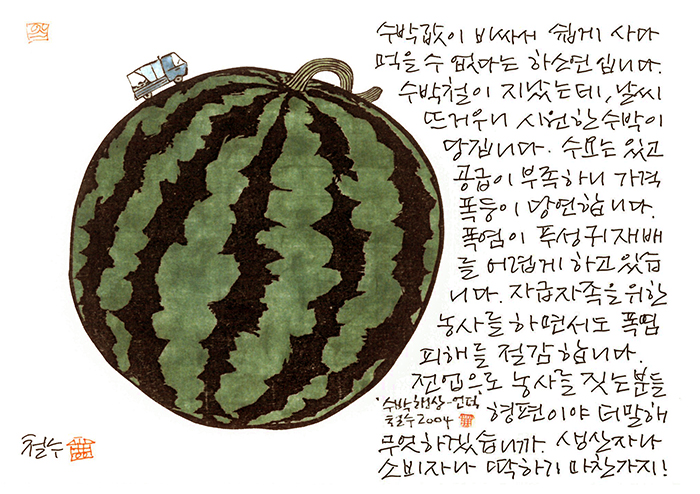 수박값이 비싸서 쉽게 사다
먹을 수 없다는 하소연입니다.
수박철이 지났는데, 날씨
뜨거우니 시원한 수박이
당깁니다. 수요는 있고
공급이 부족하니 가격
폭등이 당연합니다.
폭염이 푸성귀 재배
를 어렵게 하고 있습
니다. 자급자족을 위한
농사를 하면서도 폭염
피해를 절감합니다.
전업으로 농사를 짓는 분들
'수박행상-언덕'
철수 2004
형편이야 더 말해
무엇하겠습니까. 생산자나
소비자나 딱하기 마찬가지!
철수